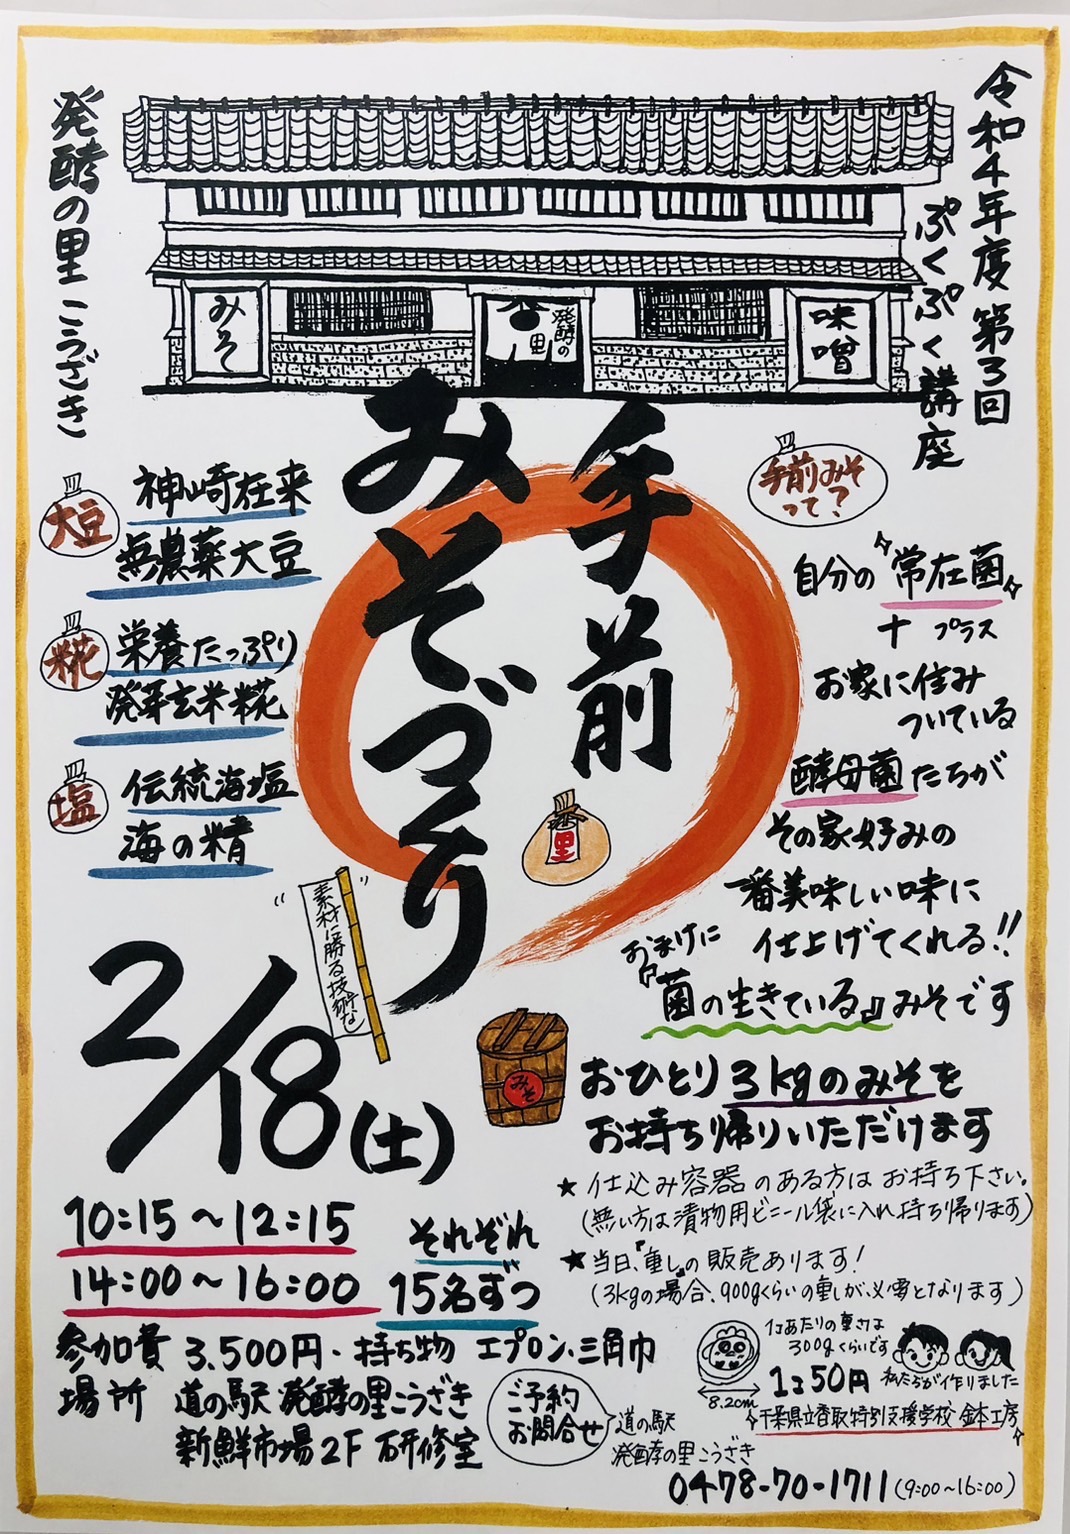 令和4年度 第3回
ぷくぷく講座
発酵の里 こうざき
みそ
発酵の里
味噌
手前
みそづくり
里
大豆
神崎在来
無農薬大豆
糀
栄養たっぷり
発芽玄米糀
塩
伝統海塩
海の精
素材に勝る技術なし
手前みそ
って?
自分の『常在菌』
+ プラス
お家に住み
ついている
酵母菌たちが
その家好みの
一番美味しい味に
仕上げてくれる!!
おまけに
『菌の生きている』みそです
みそ
おひとり3kgのみそを
お持ち帰りいただけます
★仕込み容器のある方はお持ち下さい。
(無い方は漬物用ビニール袋に入れ持ち帰ります)
★当日、"重し"の販売あります!
(3kgの場合、900gくらいの重しが必要となります)
1コあたりの重さは
300gくらいです
8.2cm
1コ50円
私たちが作りました
千葉県立香取特別支援学校 鉢本工房
2/18(土)
10:15~12:15
14:00~16:00
それぞれ
15名ずつ
参加費 3.500円・持ち物 エプロン、三角巾
場所 道の駅 発酵の里こうざき
新鮮市場2F 研修室
ご予約
お問合せ
道の駅
発酵の里こうざき
0478-70-1711(9:00~16:00)